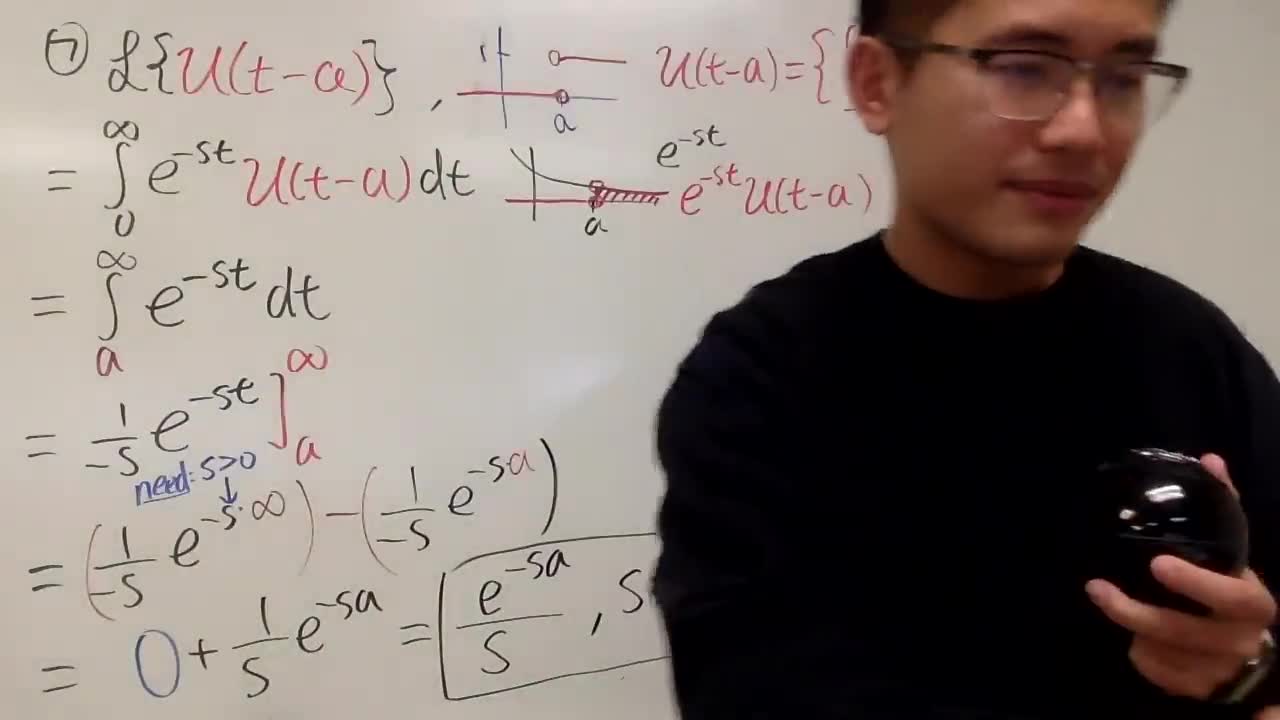 ⑦ ℒ{U(t-a)}, 1 a U(t-a)={
= ∫₀^∞ e^{-st} U(t-a) dt a e^{-st} e^{-st}U(t-a)
= ∫ₐ^∞ e^{-st} dt
= 1/-s e^{-st} ]ₐ^∞
need: s>0
= (1/-s e^{-s·∞}) - (1/-s e^{-sa})
= 0 + 1/s e^{-sa} = e^{-sa}/s , s